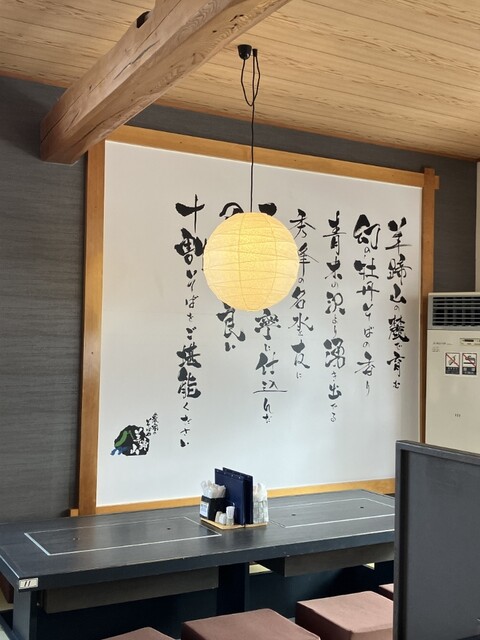 羊蹄山の麓で育む
幻の牡丹そばの香り
青木の沢より湧き出ずる
秀峰の名水を友に
丁寧に仕込んだ
良い
十割そばをご堪能ください
11